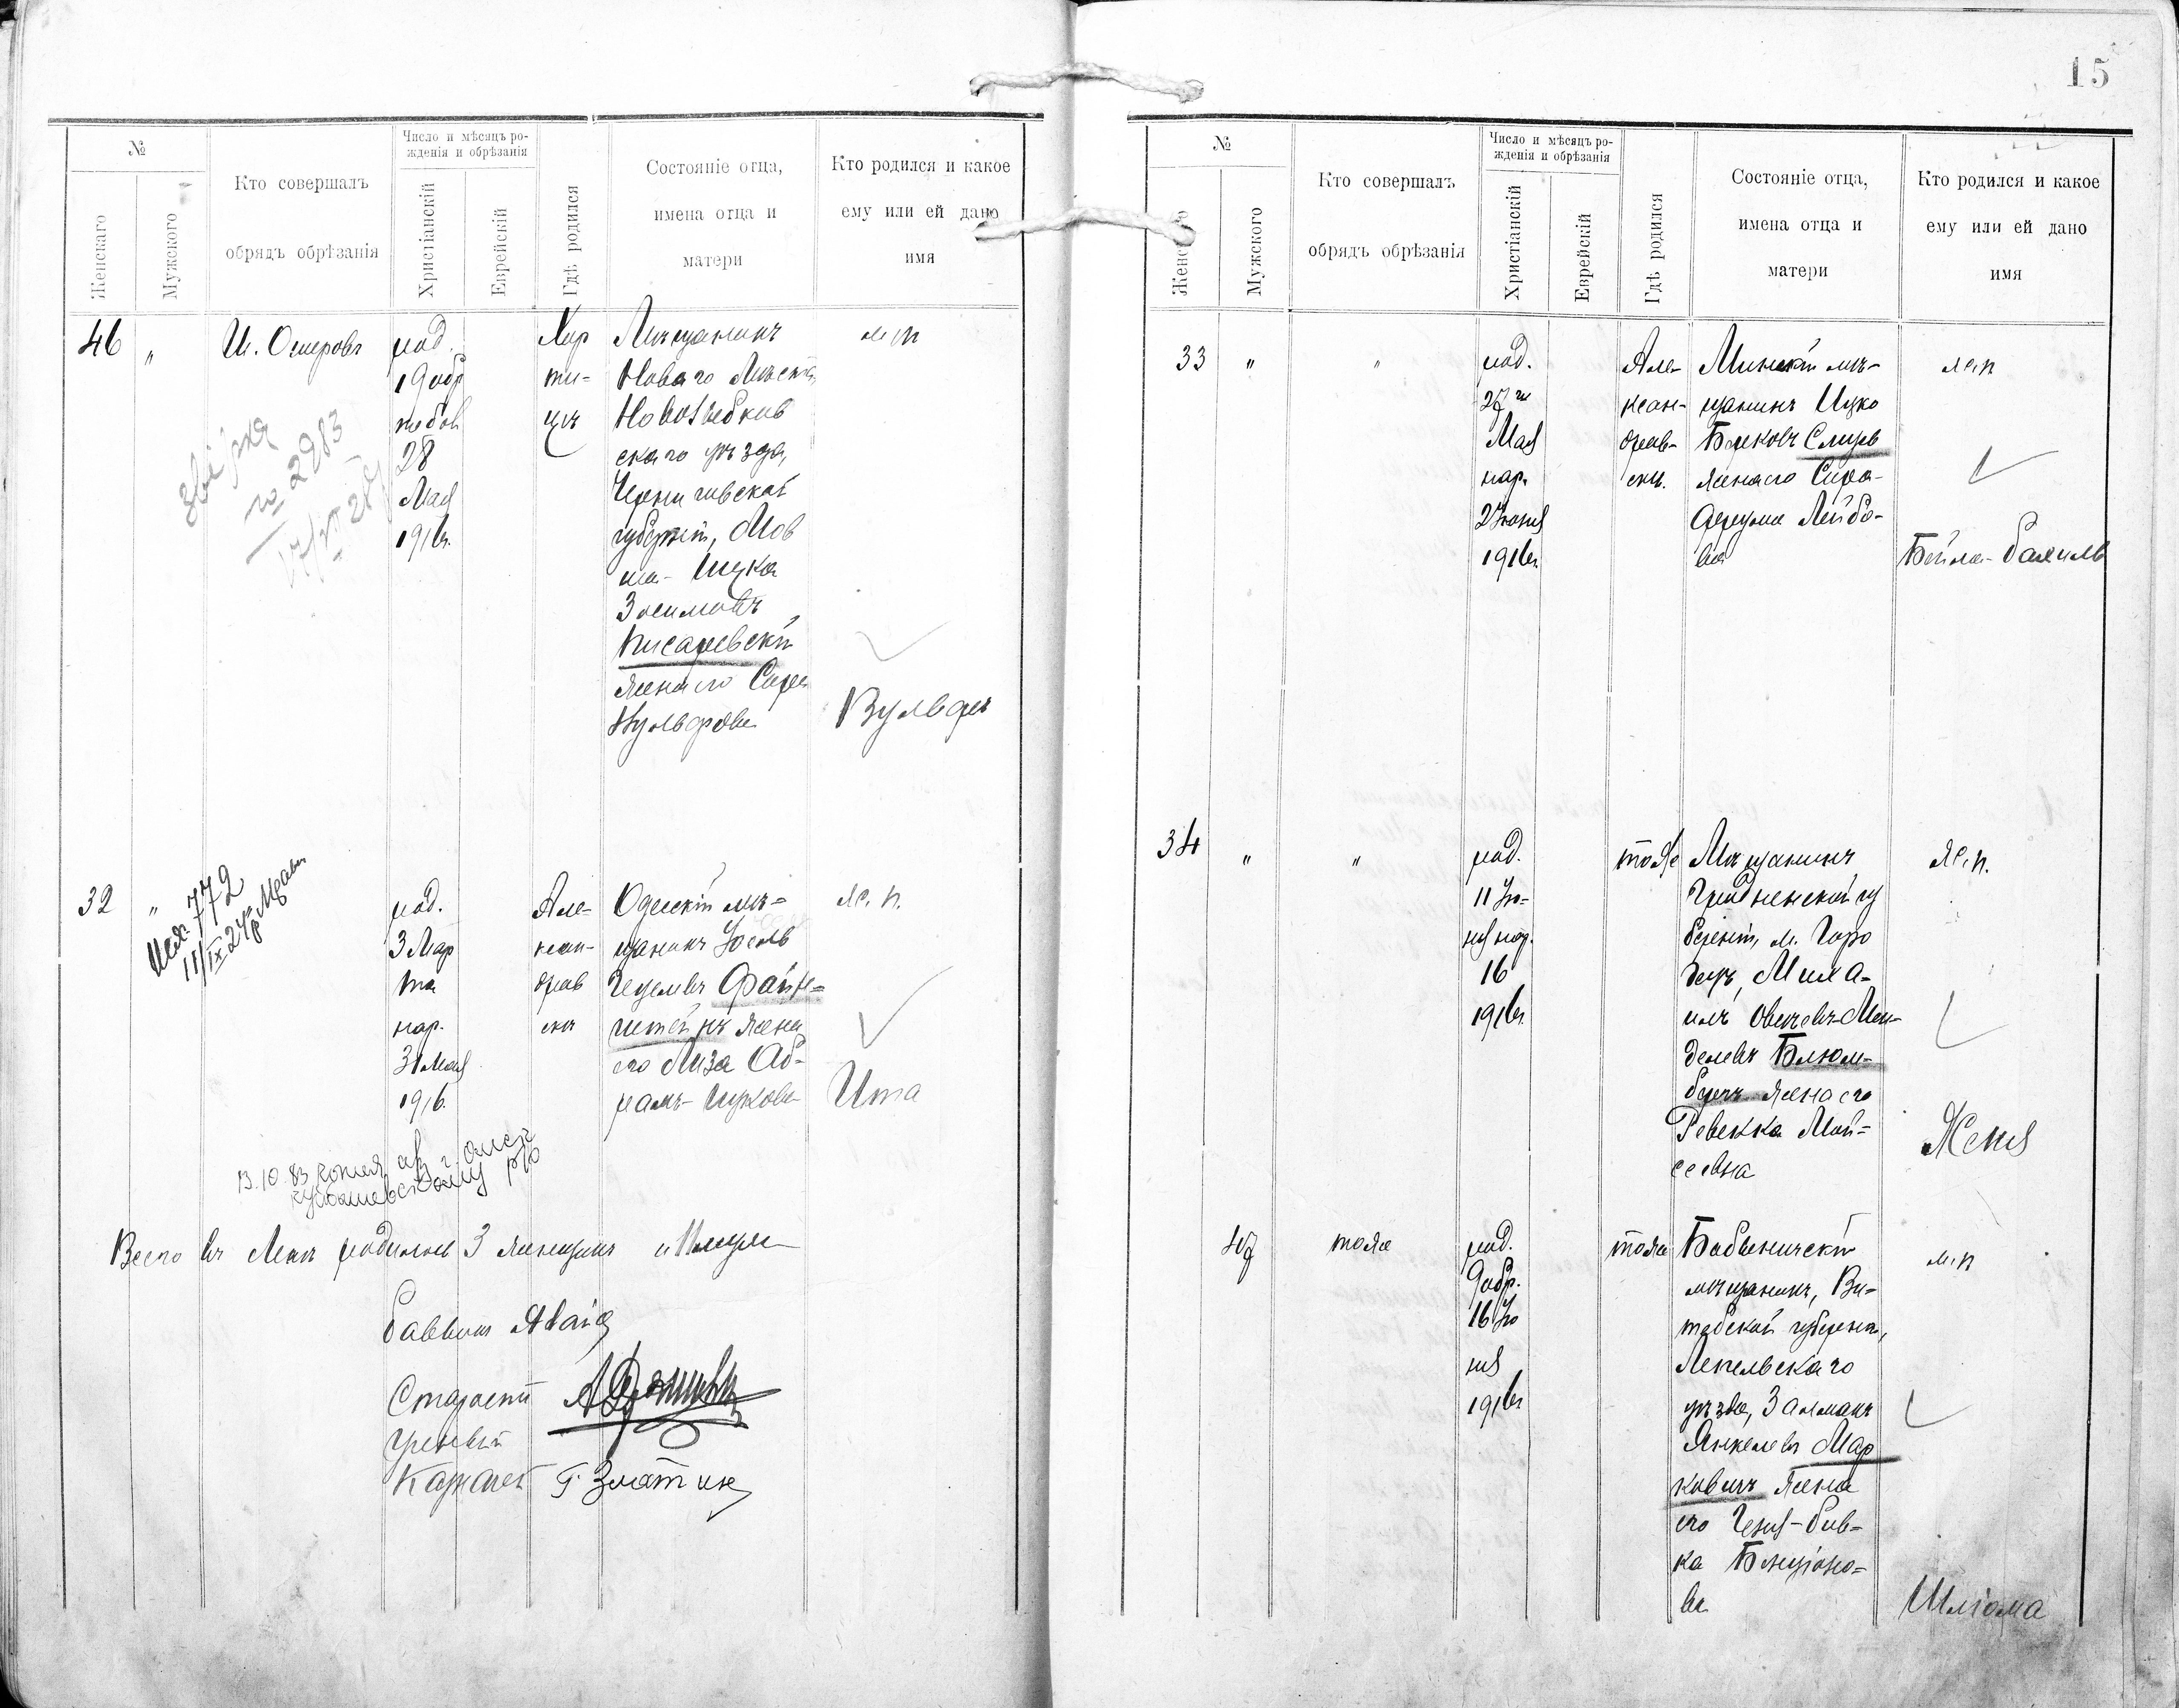 №
Женскаго
Мужского
Кто совершалъ
обрядъ обрѣзанія
Число и мѣсяцъ ро-
жденія и обрѣзанія
Христіанскій
Еврейскій
Гдѣ родился
Состояніе отца,
имена отца и
матери
Кто родился и какое
ему или ей дано
имя
46
"
И. Ошеровъ
род.
19 обр
28
Мая
1916г.
Хор
ти-
цѣ
Мѣщанинъ
Новаго Мѣста,
Новозыбков
скаго уѣзда,
Черниговской
губерніи, Мов
ша-Ицка
Зосимовъ
Писаревскій
жена его Сара
Вульфова
м.п
Вульфъ
2983
32
"
772
11/IX 24
род.
3 Мар
та
нар.
31 Мая
1916.
Але-
ксан-
дров
скъ
Одесскій мѣ-
щанинъ Іосель
Гецелевъ Файн-
штейнъ жена
его Лиза Аб-
рамъ-Ицкова
ж. п.
Ита
13.10.83 копия
Всего въ Маѣ родилось 3 женщинъ и
Раввинъ
Староста
Ученый
Казначей Г. Златкин
15
№
Женскаго
Мужского
Кто совершалъ
обрядъ обрѣзанія
Число и мѣсяцъ ро-
жденія и обрѣзанія
Христіанскій
Еврейскій
Гдѣ родился
Состояніе отца,
имена отца и
матери
Кто родился и какое
ему или ей дано
имя
33
"
"
род.
27го
Мая
нар.
2 Іюня
1916г.
Але-
ксан-
дров-
скъ.
Минскій мѣ-
щанинъ Ицко
Берковъ
жена его Сира-
Лейбо-
ва
ж.п
Бейла-Рахиль
34
"
"
род.
11 Ію-
ня нар.
16
1916г.
тоже
Мѣщанинъ
Гродненской гу
берніи, м. Горо
децъ, Миха-
илъ Овшевъ-Мен-
делевъ Блюм-
бергъ жена его
Ревекка Мой-
сеевна
ж.п.
Женя
47
тоже
род.
9 обр.
16 Ію
ня
1916г
тоже
Бабыничскій
мѣщанинъ, Ви-
тебской губерніи,
Лепельскаго
уѣзда, Залманъ
Янкелевъ Мар
ковичъ жена
его Геня-Рив-
ка Бенціоно-
ва
м.п
Шліома